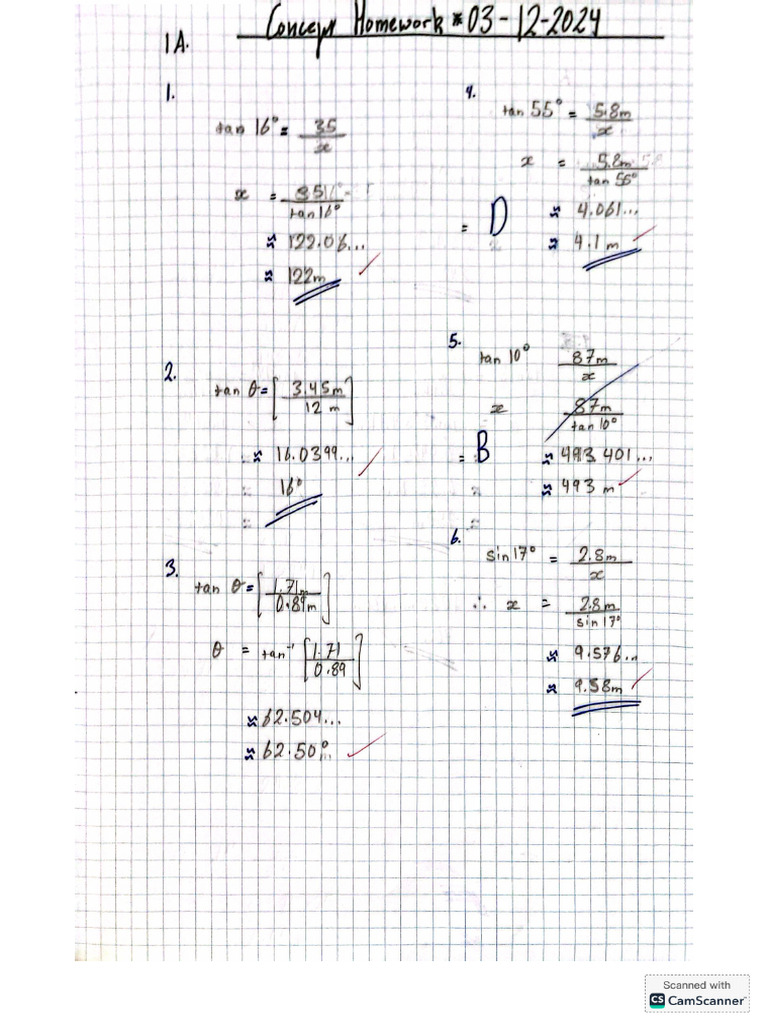 Concept Homework * 03-12-2024
1A.
1.
tan 16° = 35
x
x =
tan 16°
≈ 122.06...
≈ 122m
2.
tan θ = [3.45m
12 m]
≈ 16.0399...
16°
3.
tan θ = [1.71m
0.89m]
θ = tan⁻¹ [1.71
0.89]
≈ 62.504...
≈ 62.50°
4.
tan 55° = 5.8m
x
x = 5.8m
tan 55°
≈ 4.061...
= D
≈ 4.1 m
5.
tan 10° 87m
x
x 87m
tan 10°
= B ≈ 493.401...
≈ 493 m
6.
sin 17° = 2.8m
x
∴ x = 2.8m
sin 17°
≈ 9.576...
≈ 9.58m
Scanned with
CS CamScanner